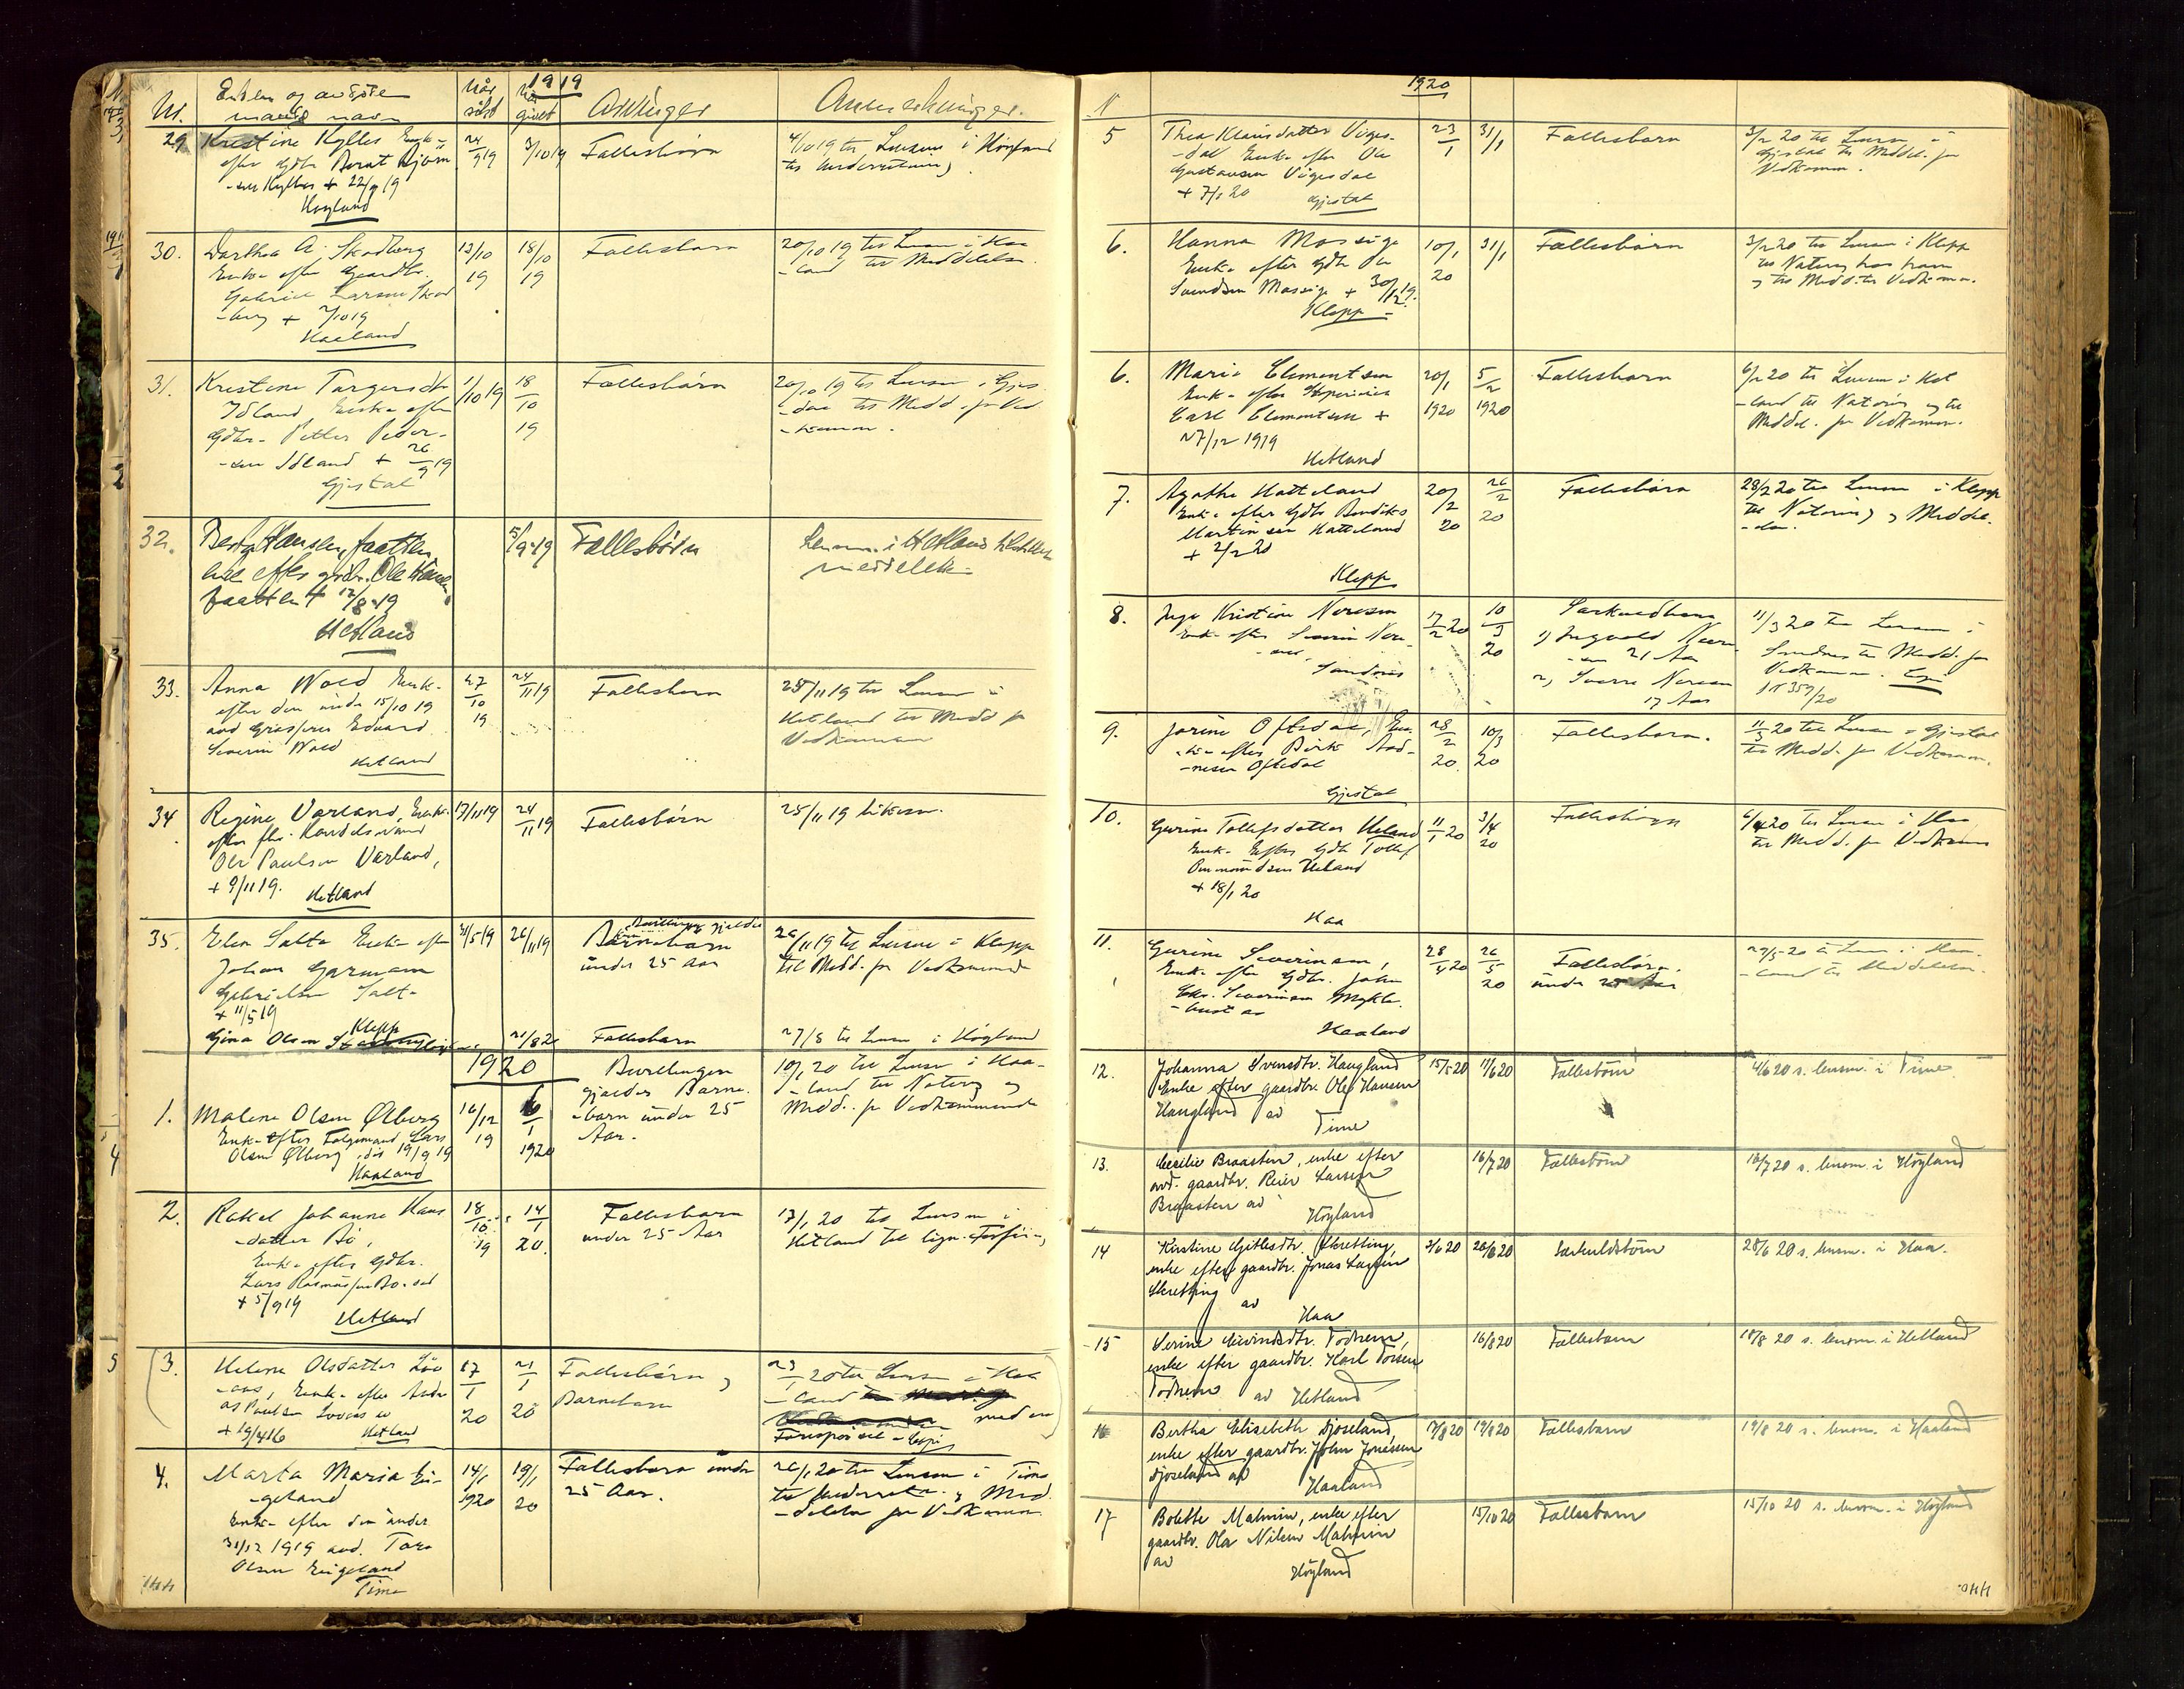 1919
Nr.
mands navn
Når
søkt
Når
givet
Arvinger
Anmerkninger.
29. Kristine Kylles Enke
efter gdbr Bernt Bjørn
-sen Kylles + 22/9 19
Høyland
24/9 19
3/10 19
Fællesbørn
4/10 19 til Lensm i Høyland
til Underretning
30. Dorthea A. Skadberg
Enke efter Gaardbr.
Gabriel Larsen Skad
-berg + 2/10 19
Haaland
13/10
19
18/10
19
Fællesbarn
20/10 19 til Lensm i Haa
-land til Meddelelse.
31. Kristine Torgersdtr
Idland Enke efter
Gdbr. Petter Peder-
-sen Idland + 26/9 19
Gjestal
1/10 19
18/10
19
Fællesbørn
20/10 19 til Lensm i Gjes
-dal til Medd. for Ved
-komm.
32. Berta Hansen, Paatten
efter gdbr. Ole Hansen
Paatten + 12/8-19
Hetland
5/9-19
Fællesbørn
Lensm. i Hetland
meddelelse
33. Anna Wold Enke
efter den under 15/10 19
avd Edvard
Severin Wold
Hetland
27/10
19
24/11 19
Fællesbarn
25/11 19 til Lensm i
Hetland til Medd for
Vedkommende
34 Regine Varland, Enke
efter fhv. Handelsmand
Ole Paulsen Varland,
+ 9/11 19. Hetland
17/11 19
24/11 19
Fællesbørn
25/11 19 likesom.
35. Elen Salte Enke efter
Johan Garmann
Gabrielsen Salte
+ 11/5 19
Klepp
21/5 19
26/11 19
Bevillingen gjelder
Barnebarn
under 25 Aar
26/11 19 til Lensm i Klepp
til Medd. for Vedkommende
Gina Olsen
21/8 20
Fællesbarn
27/8 til Lensm i Høyland
1920
1. Malene Olsen Ølberg
Enke efter Følgemand Lars
Olsen Ølberg, død 19/9 19
Haaland
16/12
19
6/1
1920
Bevillingen
gjælder Barne
-barn under 25
Aar.
10/1 20 til Lensm i Haa-
-land til Notering og
Medd. for Vedkommende
2. Rakel Johanne Hans
-datter Bø,
Enke efter Gdbr.
Lars Rasmussen Bø. død
+ 5/9 19
Hetland
18/10
19
14/1
20.
Fællesbarn
under 25 Aar
17/1 20 til Lensm i
Hetland til
(3. Helene Olsdatter
Enke efter
Paulsen
+ 19/4 16 Hetland
17/1
20
21/1
20
Fællesbørn og
Barnebarn
23/1 20 til Lensm i Het
-land
med en
Forespørsel
4. Marta Maria Ei-
-geland
Enke efter den under
31/12 1919 avd. Tore
Olsen Eigeland
Time
14/1
1920
19/1
20
Fællesbarn under
25 Aar.
26/1 20 til Lensm i Time
til Underretn. og Med
-delelse for Vedkomm.
1920
5 Thea Klausdatter Viges-
-dal Enke efter Ole
Gustavsen Vigesdal
+ 7/1 20 Gjestal
23/1
31/1
Fællesbarn
3/2 20 til Lensm i
Gjestal til Meddel. for
Vedkomm.
6. Hanna Mossige
Enke efter Gdbr Ole
Svendsen Mossige + 30/12 19.
Klepp
10/1
20
31/1
Fællesbørn
3/2 20 til Lensm i Klepp
til Notering hos ham
og til Medd. til Vedkomm.
6. Marie Clementsen
Enke efter
Carl Clementsen +
27/12 1919
Hetland
20/1
1920
5/2
1920
Fællesbarn
6/2 20 til Lensm i Het
-land til Notering og til
Meddel. for Vedkomm.
7. Agathe Hatteland
Enke efter Gdbr Bendiks
Martinsen Hatteland
+ 2/2 20
Klepp
20/2
20
26/2
20
Fællesbørn
28/2 20 til Lensm i Klepp
til Notering og Meddel.
8. Inga Kristine Noresen
Enke efter Severin Nore-
-sen
Sandnes
17/2 20
10/3
20
Særkuldbarn
1) Ingvald Nore
-sen 21 Aar
2) Sverre Noresen
17 Aar
11/3 20 til Lensm i
Sandnes til Medd. for
Vedkomm.
Jr 359/20
9. Jorine Oftedal, En
-ke efter Birk Aad-
-nesen Oftedal
Gjestal
28/2
20.
10/3
20
Fællesbarn.
11/3 20 til Lensm i Gjestal
til Medd. for Vedkomm.
10. Gurine Tollefsdatter Ueland
Enke Efter Gdbr Tollef
Ommundsen Ueland
+ 18/1 20
Haa
11/1 20
3/4
20
Fællesbørn
6/4 20 til Lensm i Haa
til Medd. for Vedkomm
11. Gurine Severinsen,
Enke efter Gdbr. John
Severinsen Mykle-
-bust av
Haaland
28/4 20
26/5
20
Fællesbørn.
under 25 Aar
29/5-20 til Lensm i Haa-
-land til Meddelelse.
12. Johanna Svensdtr. Haugland
Enke efter gaardbr. Ole Hansen
Haugland av
Time
15/5 20
11/6 20
Fællesbørn
4/6 20 s. lensm. i Time
13. Cecilie Braasten, enke efter
avd. gaardbr. Reier Larsen
Braasten av
Høyland
16/7 20
Fællesbørn
16/7 20 s. lensm. i Høyland
14 Kirstine Gitlesdtr. Skretting,
enke efter gaardbr. Jonas Larsen
Skretting
av
Haa
3/6 20
26/6 20
Særkuldsbørn
28/6 20 s. lensm. i Haa.
15 Serine Eivindsdtr. Todnem,
enke efter gaardbr. Karl Torsen
Todnem av Hetland
16/8 20
Fællesbarn
18/8 20 s. lensm. i Hetland
16 Bertha Elisabeth Djøseland,
enke efter gaardbr. John Jonassen
Djøseland av
Haaland
17/8 20
19/8 20
Fællesbarn
19/8 20 s. lensm. i Haaland
17 Bolette Malmin, enke efter
gaardbr. Ola Nilsen Malmin
av
Høyland
15/10 20
Fællesbarn
15/10 20 s. lensm. i Høyland